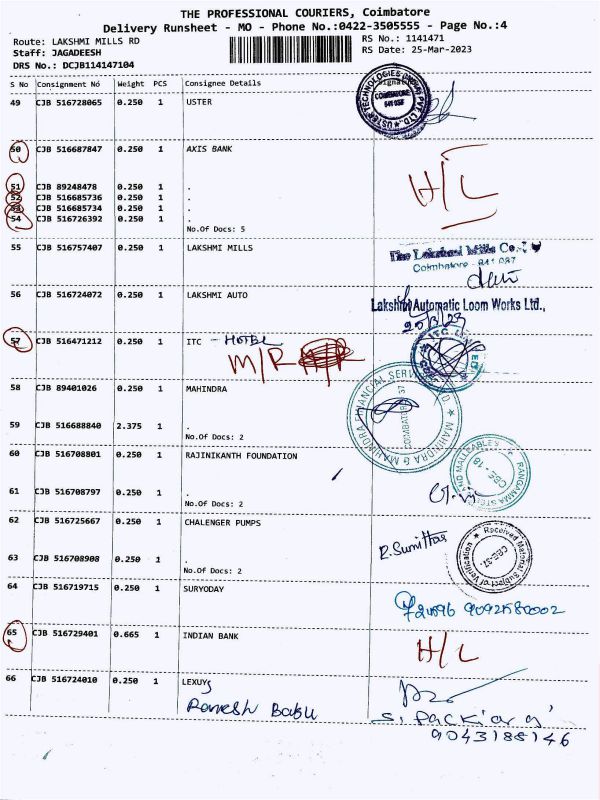 THE PROFESSIONAL COURIERS, Coimbatore
Delivery Runsheet - MO - Phone No.:0422-3505555 - Page No.:4
Route: LAKSHMI MILLS RD
Staff: JAGADEESH
DRS No.: DCJB114147104
RS No.: 1141471
RS Date: 25-Mar-2023
S No Consignment No Weight PCS Consignee Details
49 CJB 516728065 0.250 1 USTER
USTER TECHNOLOGIES (INDIA) PVT. LTD.
COIMBATORE
50 CJB 516687847 0.250 1 AXIS BANK
H/L
51 CJB 89248478 0.250 1 .
52 CJB 516685736 0.250 1 .
53 CJB 516685734 0.250 1 .
54 CJB 516726392 0.250 1 .
No.Of Docs: 5
55 CJB 516757407 0.250 1 LAKSHMI MILLS
The Lakshmi Mills Co.
Coimbatore - 641 037
56 CJB 516724072 0.250 1 LAKSHMI AUTO
Lakshmi Automatic Loom Works Ltd.,
25/3/23
57 CJB 516471212 0.250 1 ITC - HOTEL
M/R
58 CJB 89401026 0.250 1 MAHINDRA
MAHINDRA & MAHINDRA FINANCIAL SERVICES
COIMBATORE-37
59 CJB 516688840 2.375 1 .
No.Of Docs: 2
60 CJB 516708801 0.250 1 RAJINIKANTH FOUNDATION
RANGAMMA STEELS AND MALLEABLES
CBE-18
61 CJB 516708797 0.250 1 .
No.Of Docs: 2
62 CJB 516725667 0.250 1 CHALENGER PUMPS
R. Sumithra
Received Material Subject of Verification
CBE-37.
63 CJB 516708908 0.250 1 .
No.Of Docs: 2
64 CJB 516719715 0.250 1 SURYODAY
9092580002
65 CJB 516729401 0.665 1 INDIAN BANK
H/L
66 CJB 516724010 0.250 1 LEXUYS
Ramesh Babu
S. Packiara
9043188146